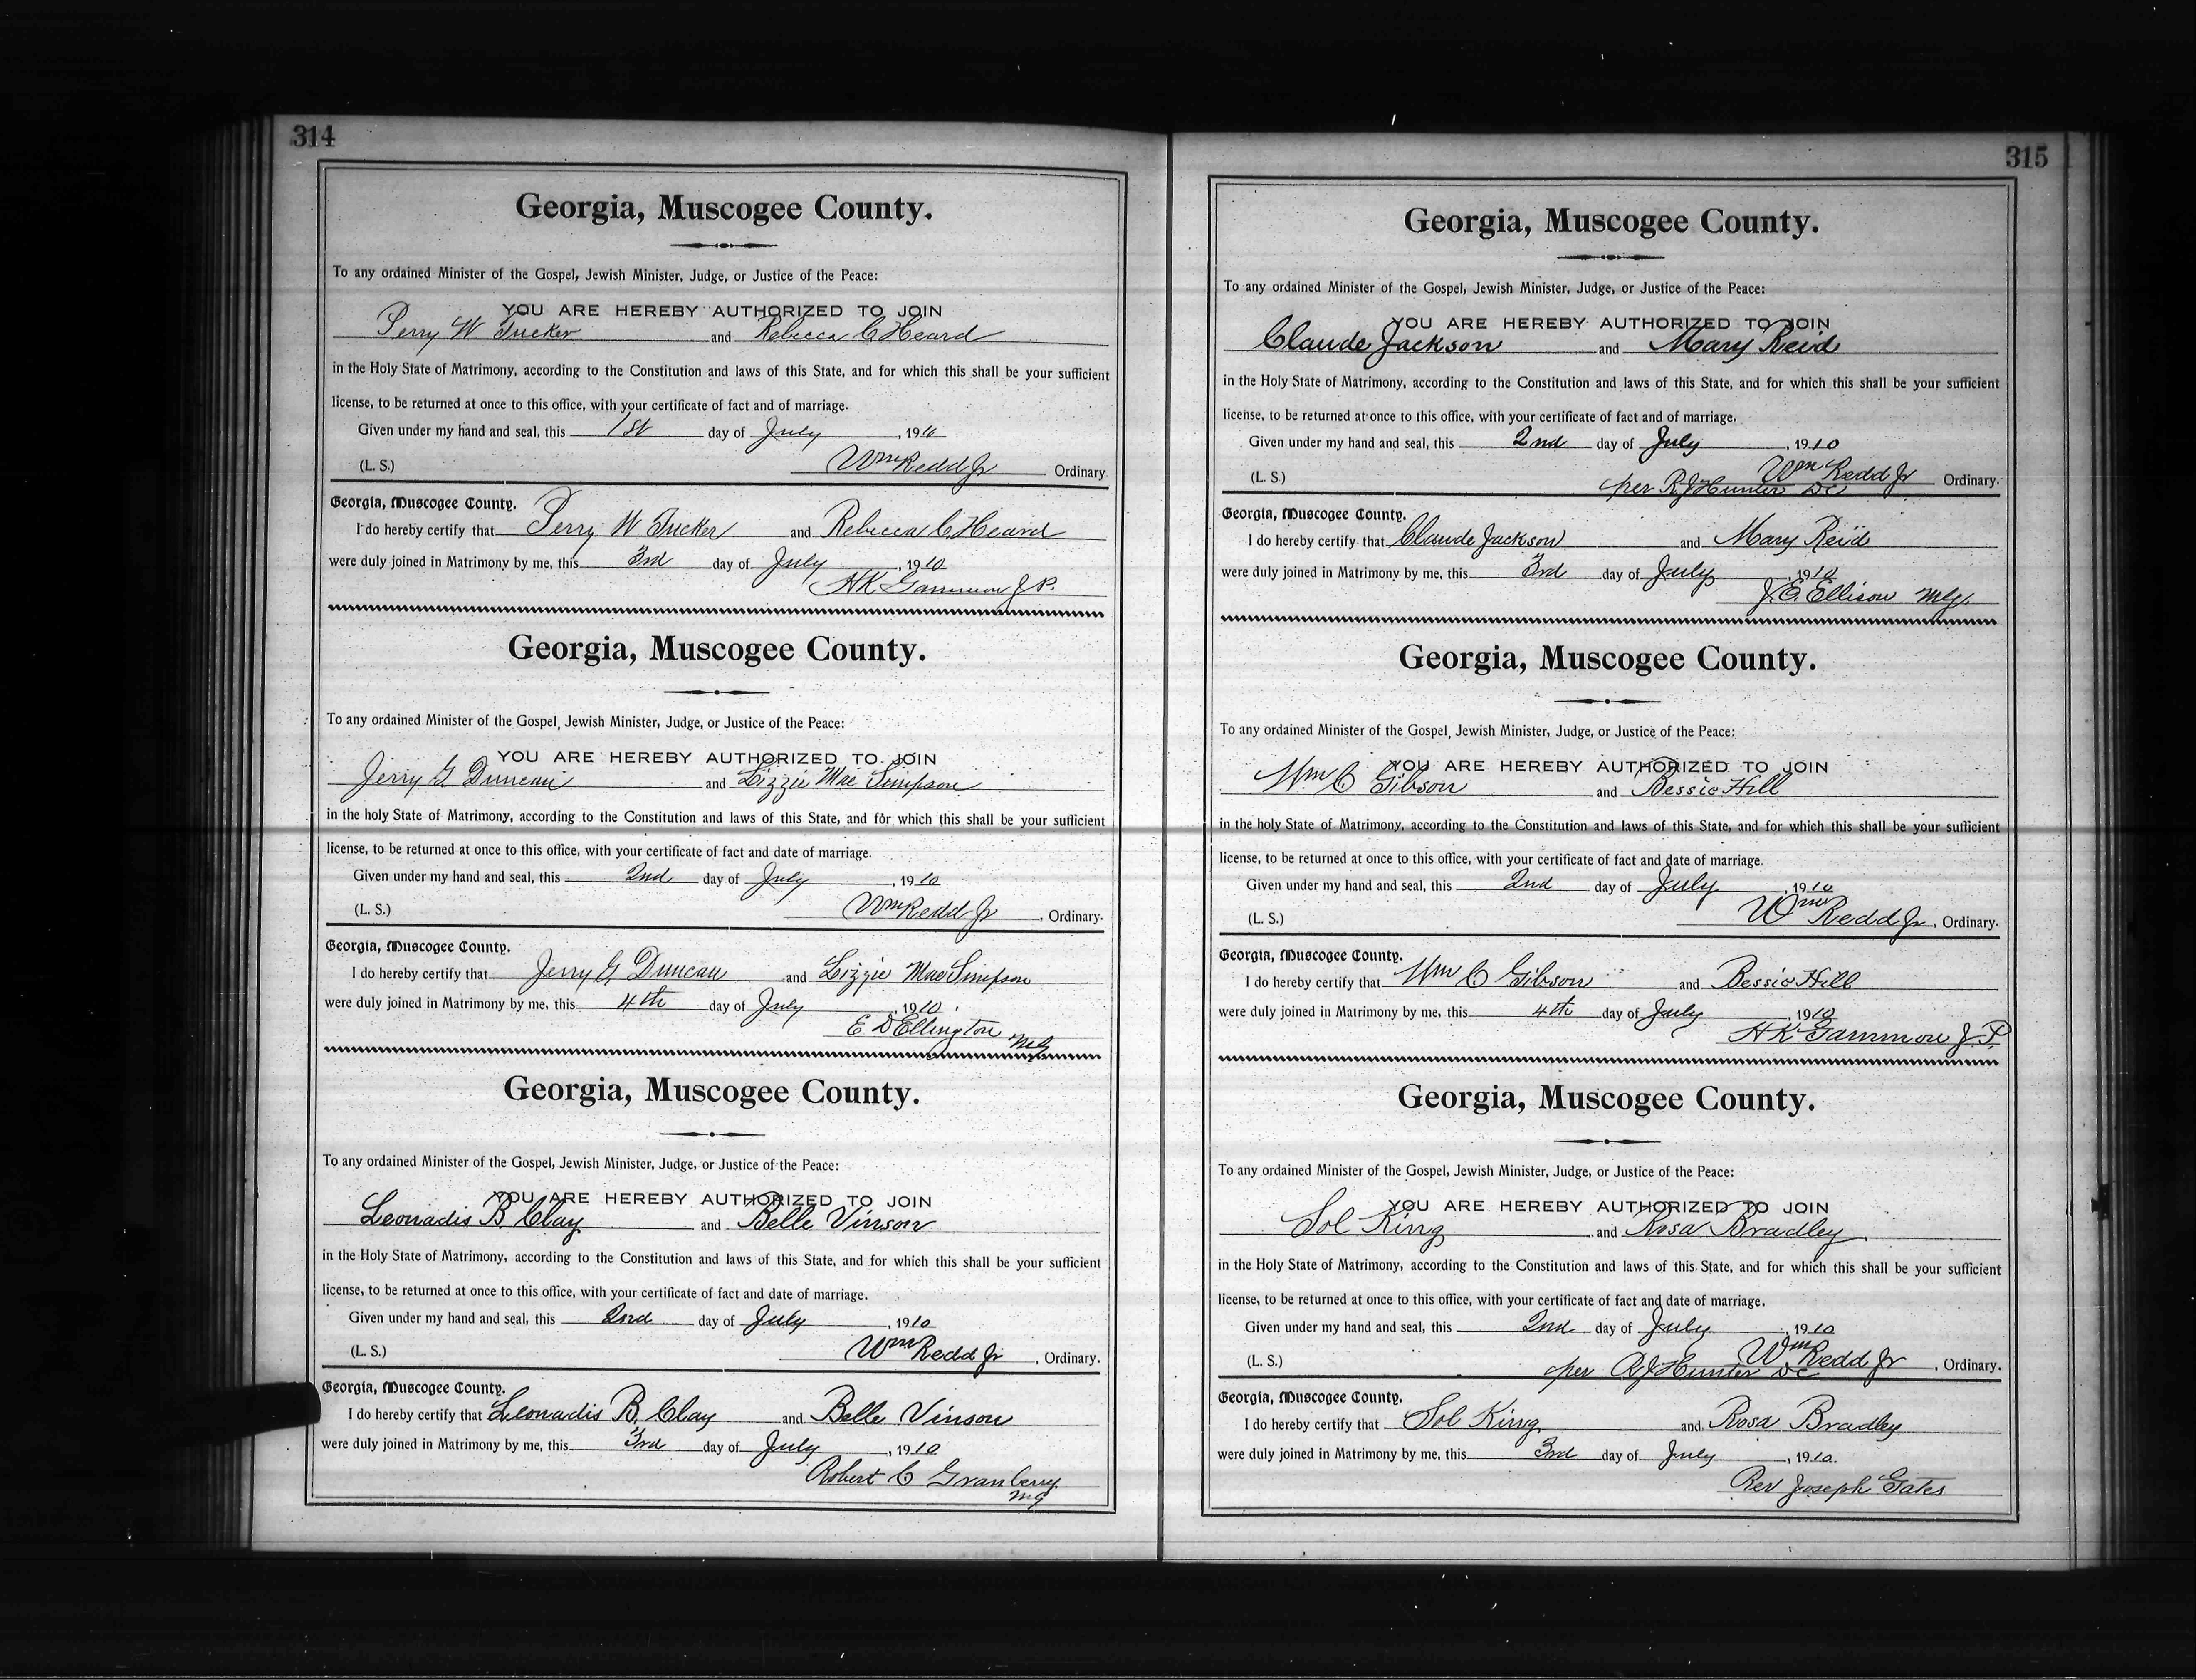 314
Georgia, Muscogee County.
To any ordained Minister of the Gospel, Jewish Minister, Judge, or Justice of the Peace:
YOU ARE HEREBY AUTHORIZED TO JOIN
Perry W Tucker and Rebecca C Heard
in the Holy State of Matrimony, according to the Constitution and laws of this State, and for which this shall be your sufficient
license, to be returned at once to this office, with your certificate of fact and of marriage.
Given under my hand and seal, this 1st day of July, 1910
(L. S.) Wm Redd Jr Ordinary.
Georgia, Muscogee County.
I do hereby certify that Perry W Tucker and Rebecca C Heard
were duly joined in Matrimony by me, this 3rd day of July, 1910
H K Gammon J P.
Georgia, Muscogee County.
To any ordained Minister of the Gospel, Jewish Minister, Judge, or Justice of the Peace:
YOU ARE HEREBY AUTHORIZED TO JOIN
Jerry G. Duncan and Lizzie Mae Simpson
in the holy State of Matrimony, according to the Constitution and laws of this State, and for which this shall be your sufficient
license, to be returned at once to this office, with your certificate of fact and date of marriage.
Given under my hand and seal, this 2nd day of July, 1910
(L. S.) Wm Redd Jr, Ordinary.
Georgia, Muscogee County.
I do hereby certify that Jerry G. Duncan and Lizzie Mae Simpson
were duly joined in Matrimony by me, this 4th day of July, 1910.
E D Ellington MG
Georgia, Muscogee County.
To any ordained Minister of the Gospel, Jewish Minister, Judge, or Justice of the Peace:
YOU ARE HEREBY AUTHORIZED TO JOIN
Leonadis B Clay and Belle Vinson
in the Holy State of Matrimony, according to the Constitution and laws of this State, and for which this shall be your sufficient
license, to be returned at once to this office, with your certificate of fact and date of marriage.
Given under my hand and seal, this 2nd day of July, 1910
(L. S.) Wm Redd Jr, Ordinary.
Georgia, Muscogee County.
I do hereby certify that Leonadis B. Clay and Belle Vinson
were duly joined in Matrimony by me, this 3rd day of July, 1910
Robert C Granberry
MG
315
Georgia, Muscogee County.
To any ordained Minister of the Gospel, Jewish Minister, Judge, or Justice of the Peace:
YOU ARE HEREBY AUTHORIZED TO JOIN
Claude Jackson and Mary Reid
in the Holy State of Matrimony, according to the Constitution and laws of this State, and for which this shall be your sufficient
license, to be returned at once to this office, with your certificate of fact and of marriage.
Given under my hand and seal, this 2nd day of July, 1910
(L. S.) Wm Redd Jr Ordinary.
per R J Hunter DC
Georgia, Muscogee County.
I do hereby certify that Claude Jackson and Mary Reid
were duly joined in Matrimony by me, this 3rd day of July, 1910
J. E. Ellison MG.
Georgia, Muscogee County.
To any ordained Minister of the Gospel, Jewish Minister, Judge, or Justice of the Peace:
YOU ARE HEREBY AUTHORIZED TO JOIN
Wm C Gibson and Bessie Hill
in the holy State of Matrimony, according to the Constitution and laws of this State, and for which this shall be your sufficient
license, to be returned at once to this office, with your certificate of fact and date of marriage.
Given under my hand and seal, this 2nd day of July, 1910
(L. S.) Wm Redd Jr, Ordinary.
Georgia, Muscogee County.
I do hereby certify that Wm C Gibson and Bessie Hill
were duly joined in Matrimony by me, this 4th day of July, 1910
H K Gammon J. P.
Georgia, Muscogee County.
To any ordained Minister of the Gospel, Jewish Minister, Judge, or Justice of the Peace:
YOU ARE HEREBY AUTHORIZED TO JOIN
Sol King and Rosa Bradley
in the Holy State of Matrimony, according to the Constitution and laws of this State, and for which this shall be your sufficient
license, to be returned at once to this office, with your certificate of fact and date of marriage.
Given under my hand and seal, this 2nd day of July, 1910
(L. S.) Wm Redd Jr, Ordinary.
per R J Hunter DC
Georgia, Muscogee County.
I do hereby certify that Sol King and Rosa Bradley
were duly joined in Matrimony by me, this 3rd day of July, 1910.
Rev Joseph Gates